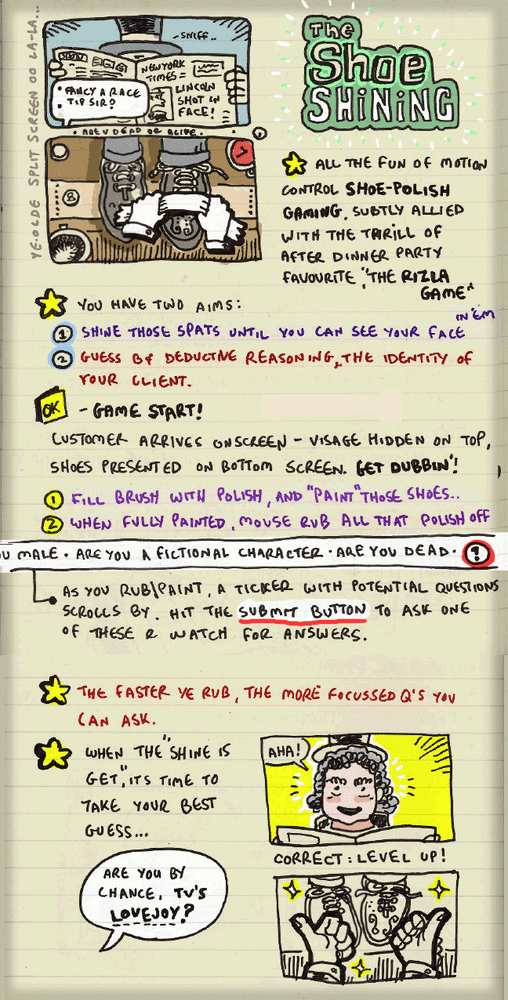 YE-OLDE SPLIT SCREEN OO LA-LA...
- SNIFF..
NEWYORK
TIMES =
LINCOLN
SHOT IN
FACE!
• FANCY A RACE
TIP SIR?
• ARE U DEAD OR ALIVE •
The
Shoe
SHiNiNG
ALL THE FUN OF MOTION
CONTROL SHOE-POLISH
GAMING, SUBTLY ALLIED
WITH THE THRILL OF
AFTER DINNER PARTY
FAVOURITE "THE RIZLA
GAME"
YOU HAVE TWO AIMS:
1 SHINE THOSE SPATS UNTIL YOU CAN SEE YOUR FACE
IN 'EM
2 GUESS BY DEDUCTIVE REASONING, THE IDENTITY OF
YOUR CLIENT.
OK - GAME START!
CUSTOMER ARRIVES ONSCREEN - VISAGE HIDDEN ON TOP,
SHOES PRESENTED ON BOTTOM SCREEN. GET DUBBIN'!
1 FILL BRUSH WITH POLISH, AND "PAINT" THOSE SHOES..
2 WHEN FULLY PAINTED, MOUSE RUB ALL THAT POLISH OFF
U MALE • ARE YOU A FICTIONAL CHARACTER • ARE YOU DEAD • !
AS YOU RUB/PAINT, A TICKER WITH POTENTIAL QUESTIONS
SCROLLS BY. HIT THE SUBMIT BUTTON TO ASK ONE
OF THESE & WATCH FOR ANSWERS.
THE FASTER YE RUB, THE MORE FOCUSSED Q'S YOU
CAN ASK.
WHEN THE "SHINE IS
GET", ITS TIME TO
TAKE YOUR BEST
GUESS...
AHA!
CORRECT: LEVEL UP!
ARE YOU BY
CHANCE, TV'S
LOVEJOY?